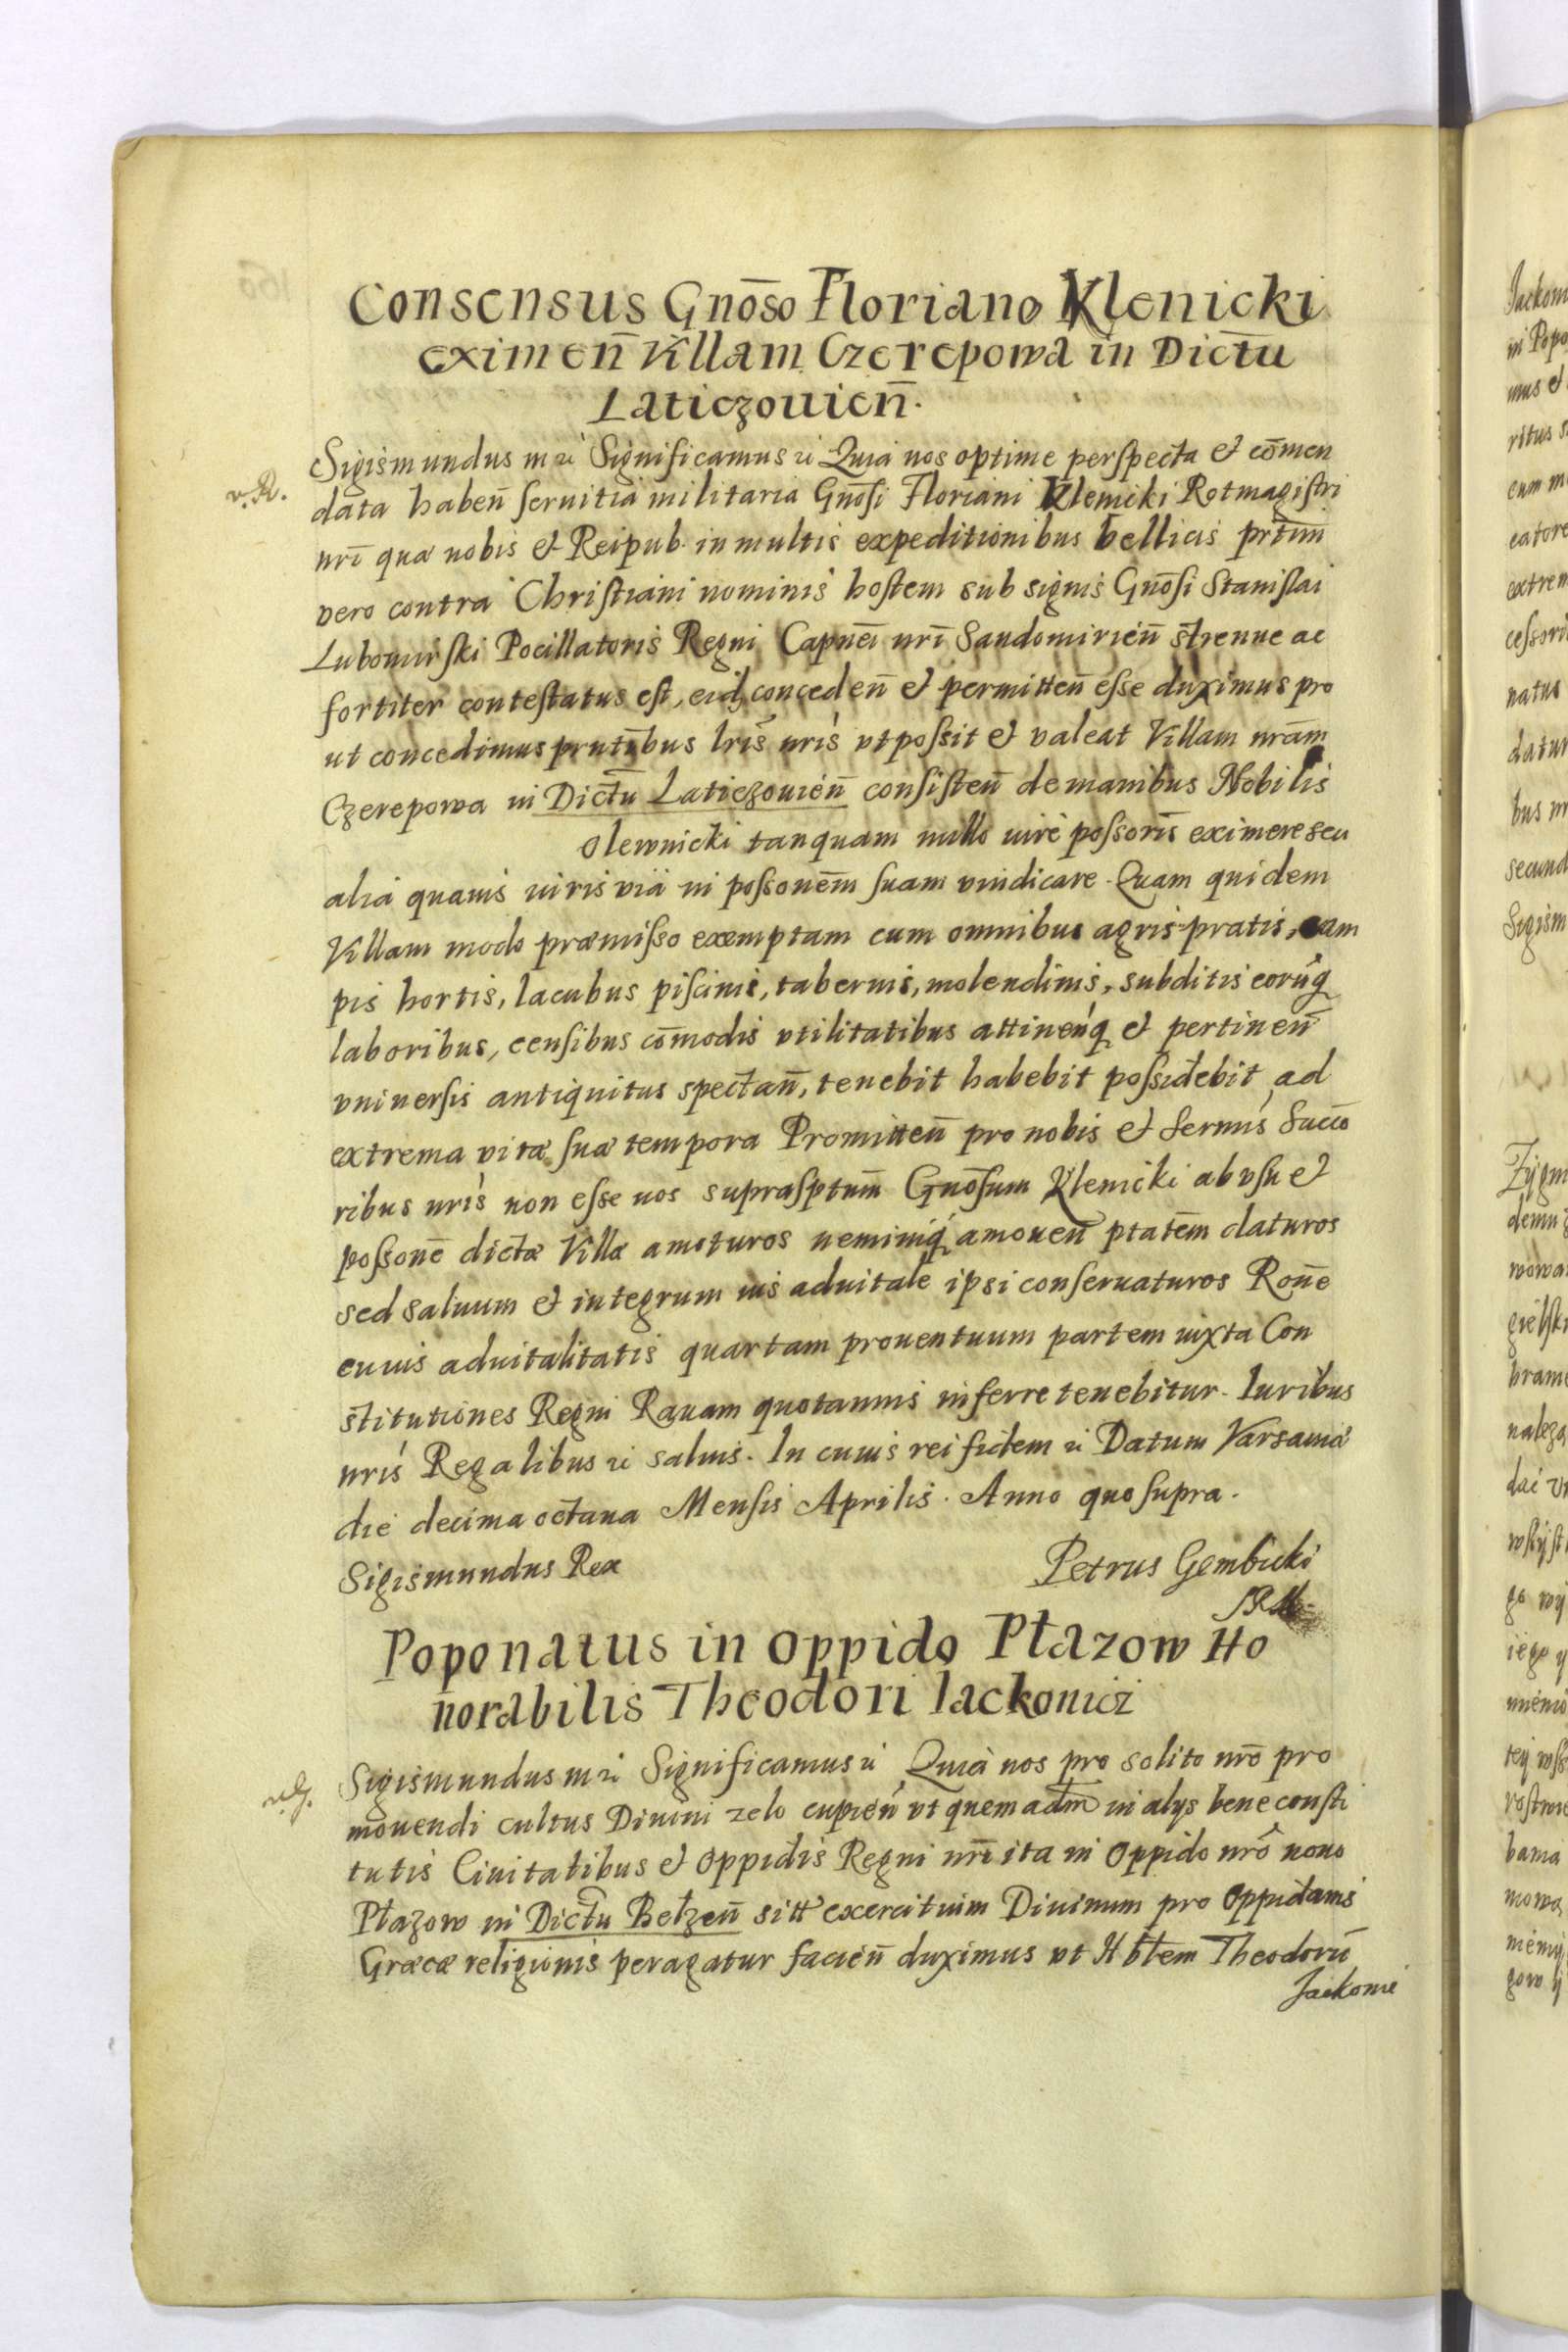 Consensus Gnōso Floriano Klenicki
eximen̄ Villam Czerepowa in Dictū
Laticzouien̄.
Sigismundus m ꝛc Significamus ꝛc Quia nos optime perspecta et cōmen
v. R.
data haben̄ seruitia militaria Gnōsi Floriani Klenicki Rotmagistri
nrī quæ nobis et Reipub. in multis expeditionibus bellicis prtīm
vero contra Christiani nominis hostem sub signis Gnōsi Stanislai
Lubomirski Pocillatoris Regni Capnēi nrī Sandomirien̄ strenue ac
fortiter contestatus est, eidꝫ conceden̄ et permitten̄ esse duximus pro
ut concedimus pnītibus lrīs nrīs vt possit et valeat Villam nrām
Czerepowa in Dictū Laticzouien̄ consisten̄ de manibus Nobilis
Olewnicki tanquam nullo iure possoris eximere seu
alia quauis iuris via in possonēm suam vindicare. Quam quidem
Villam modo præmisso exemptam cum omnibus agris pratis, cam
pis hortis, lacubus piscinis, tabernis, molendinis, subditis eorūq
laboribus, censibus cōmodis vtilitatibus attinenq et pertinen̄
vniuersis antiquitus spectan̄, tenebit habebit possidebit ad
extrema vitæ suæ tempora Promitten̄ pro nobis et Sermis Succō
ribus nrīs non esse nos suprasptūm Gnōsum Klenicki ab vsu et
possonē dictæ Villæ amoturos neminiq amouen̄ ptatēm daturos
sed saluum et integrum ius aduitale ipsi conseruaturos Ronē
cuius aduitalitatis quartam prouentuum partem iuxta Con
stitutiones Regni Rauam quotannis inferre tenebitur. Iuribus
nrīs Regalibus ꝛc saluis. In cuius rei fidem ꝛc Datum Varsauiæ
die decima octaua Mensis Aprilis. Anno quo supra.
Sigismundus Rex
Petrus Gembicki
SRM
Poponatus in oppido Płazow Ho
norabilis Theodori Iackouicz
Sigismundus m ꝛc Significamus ꝛc Quia nos pro solito nrō pro
mouendi cultus Diuini zelo cupien̄ vt quemadm̄ in alys bene consti
tutis Ciuitatibus et Oppidis Regni nrī ita in Oppido nrō nouo
Płazow in Dictū Bełzen̄ sitt exercituim Diuinum pro Oppidanis
Græcæ religionis peragatur facien̄ duximus vt Hblēm Theodorū
Jackoui